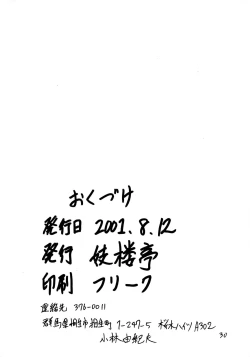 おくづけ
発行日 2001.8.12
発行 伎楼亭
印刷 フリーク
連絡先 376-0011
群馬県桐生市相生町 1-297-5 桜木ハイツA302
小林由紀夫
30